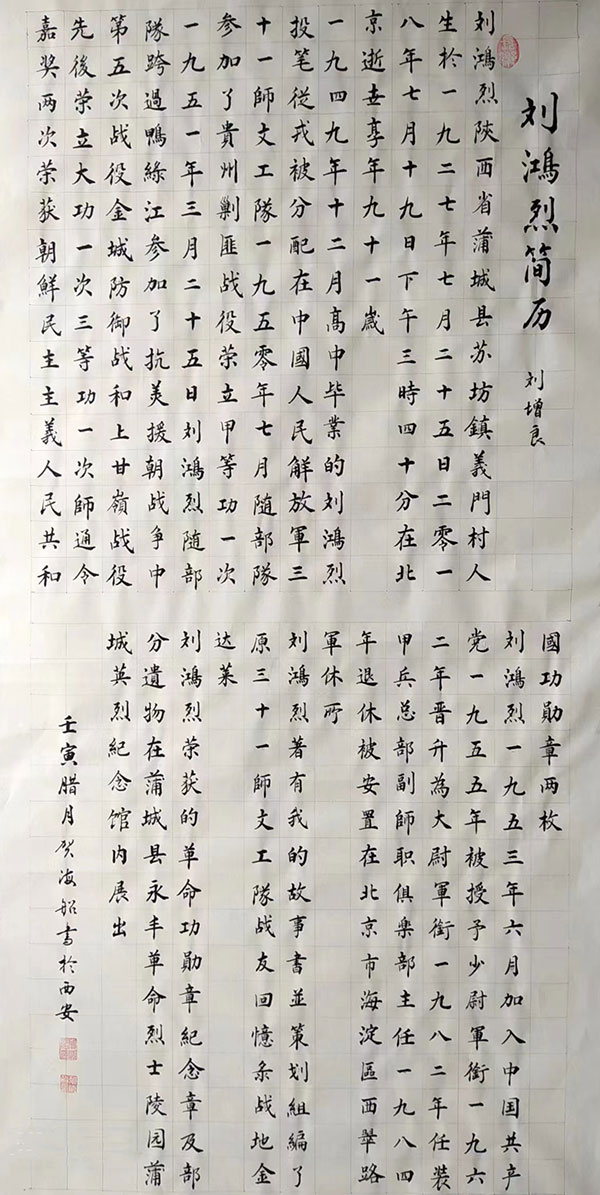 刘鴻烈简历
刘增良
刘鴻烈陝西省蒲城县苏坊鎮義門村人
生於一九二七年七月二十五日二零一
八年七月十九日下午三時四十分在北
京逝世享年九十一歲
一九四九年十二月高中毕業的刘鴻烈
投笔從戎被分配在中國人民解放軍三
十一師文工隊一九五零年七月随部隊
参加了貴州剿匪战役荣立甲等功一次
一九五一年三月二十五日刘鴻烈随部
隊跨過鴨綠江参加了抗美援朝战争中
第五次战役金城防御战和上甘嶺战役
先後荣立大功一次三等功一次師通令
嘉奖两次荣获朝鮮民主主義人民共和
國功勋章两枚
刘鴻烈一九五三年六月加入中国共产
党一九五五年被授予少尉軍銜一九六
二年晋升為大尉軍銜一九八二年任装
甲兵总部副師职俱樂部主任一九八四
年退休被安置在北京市海淀區西翠路
軍休所
刘鴻烈著有我的故事書並策划組編了
原三十一師文工隊战友回憶条战地金
达莱
刘鴻烈荣获的革命功勋章紀念章及部
分遺物在蒲城县永丰革命烈士陵园蒲
城英烈紀念馆内展出
壬寅腊月贺海船書於西安